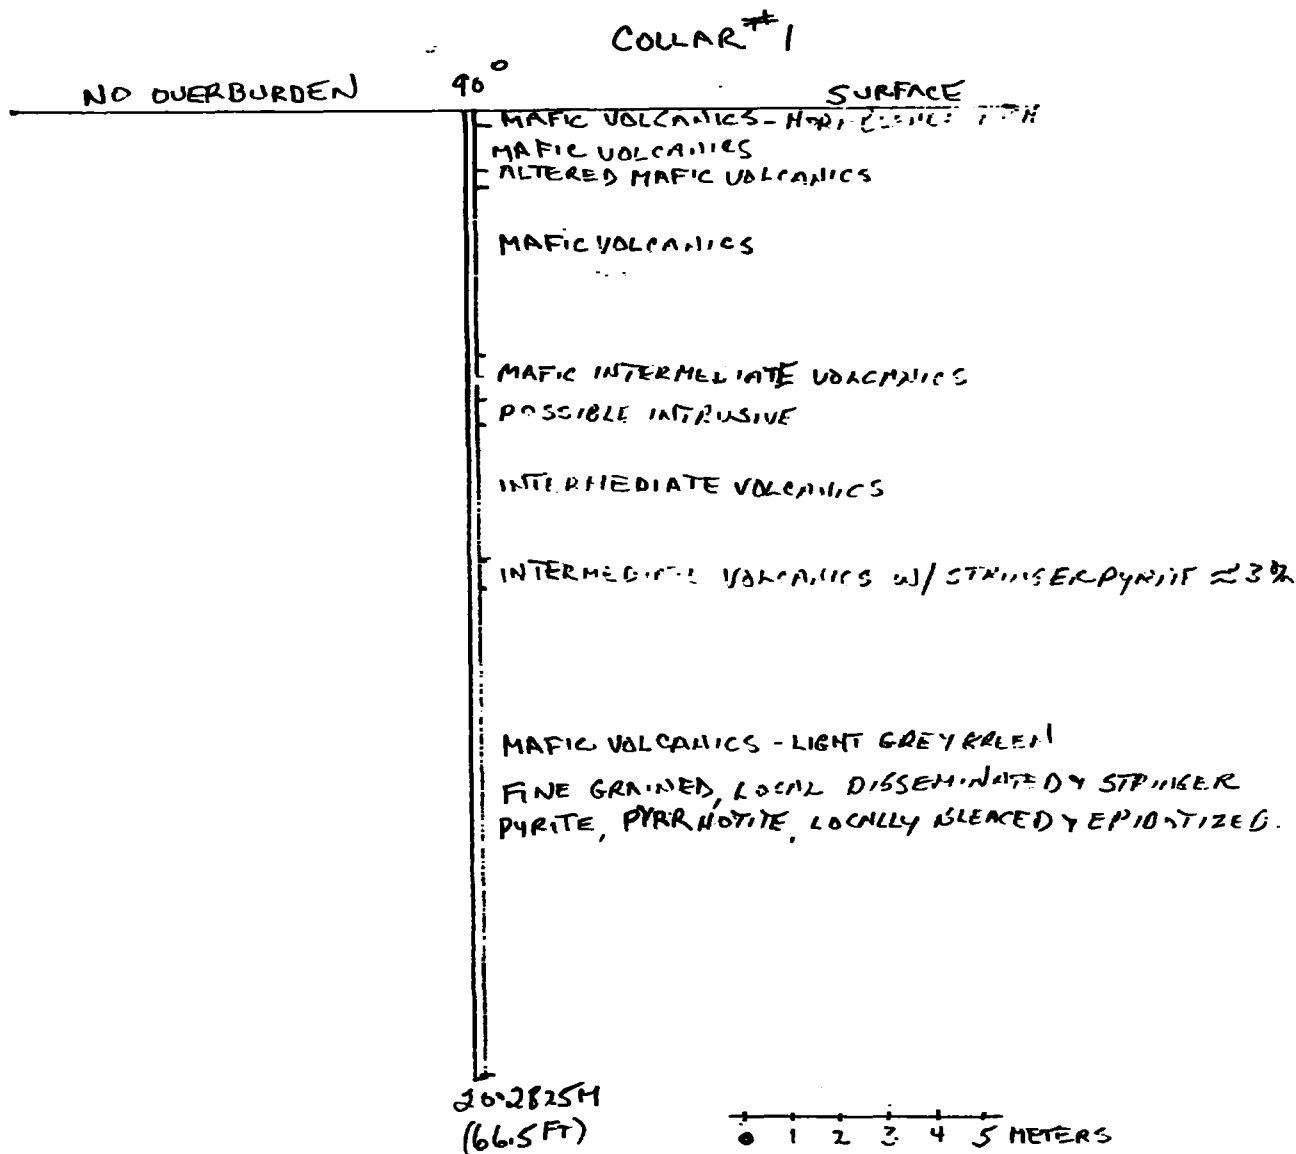 COLLAR #1
NO OVERBURDEN 90° SURFACE
MAFIC VOLCANICS -
MAFIC VOLCANICS
ALTERED MAFIC VOLCANICS
MAFIC VOLCANICS
MAFIC INTERMEDIATE VOLCANICS
POSSIBLE INTRUSIVE
INTERMEDIATE VOLCANICS
INTERMEDIATE VOLCANICS W/ STRINGER PYRITE ≈3%
MAFIC VOLCANICS - LIGHT GREY GREEN
FINE GRAINED, LOCAL DISSEMINATED & STRINGER
PYRITE, PYRRHOTITE, LOCALLY BLEACED & EPIDOTIZED.
20.2825M
(66.5 FT)
0 1 2 3 4 5 METERS